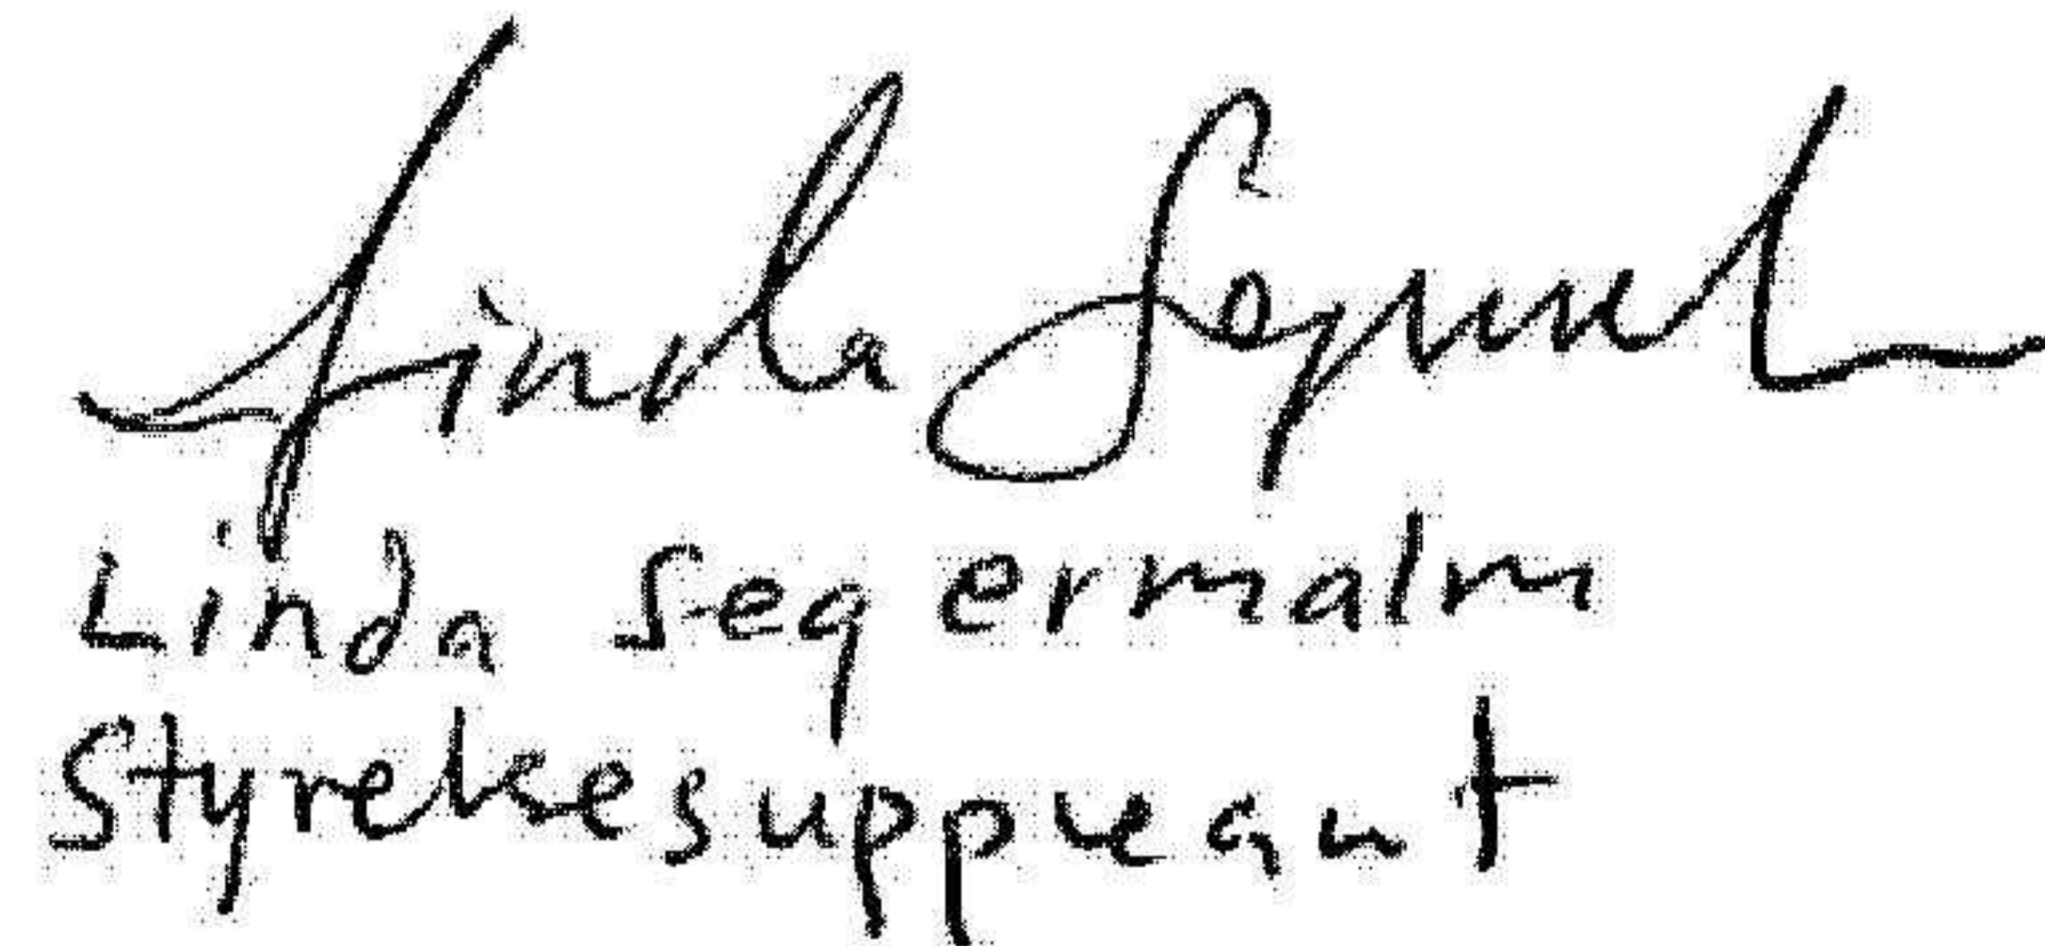 Linda Segermalm
Linda Segermalm
Styrelsesuppleant